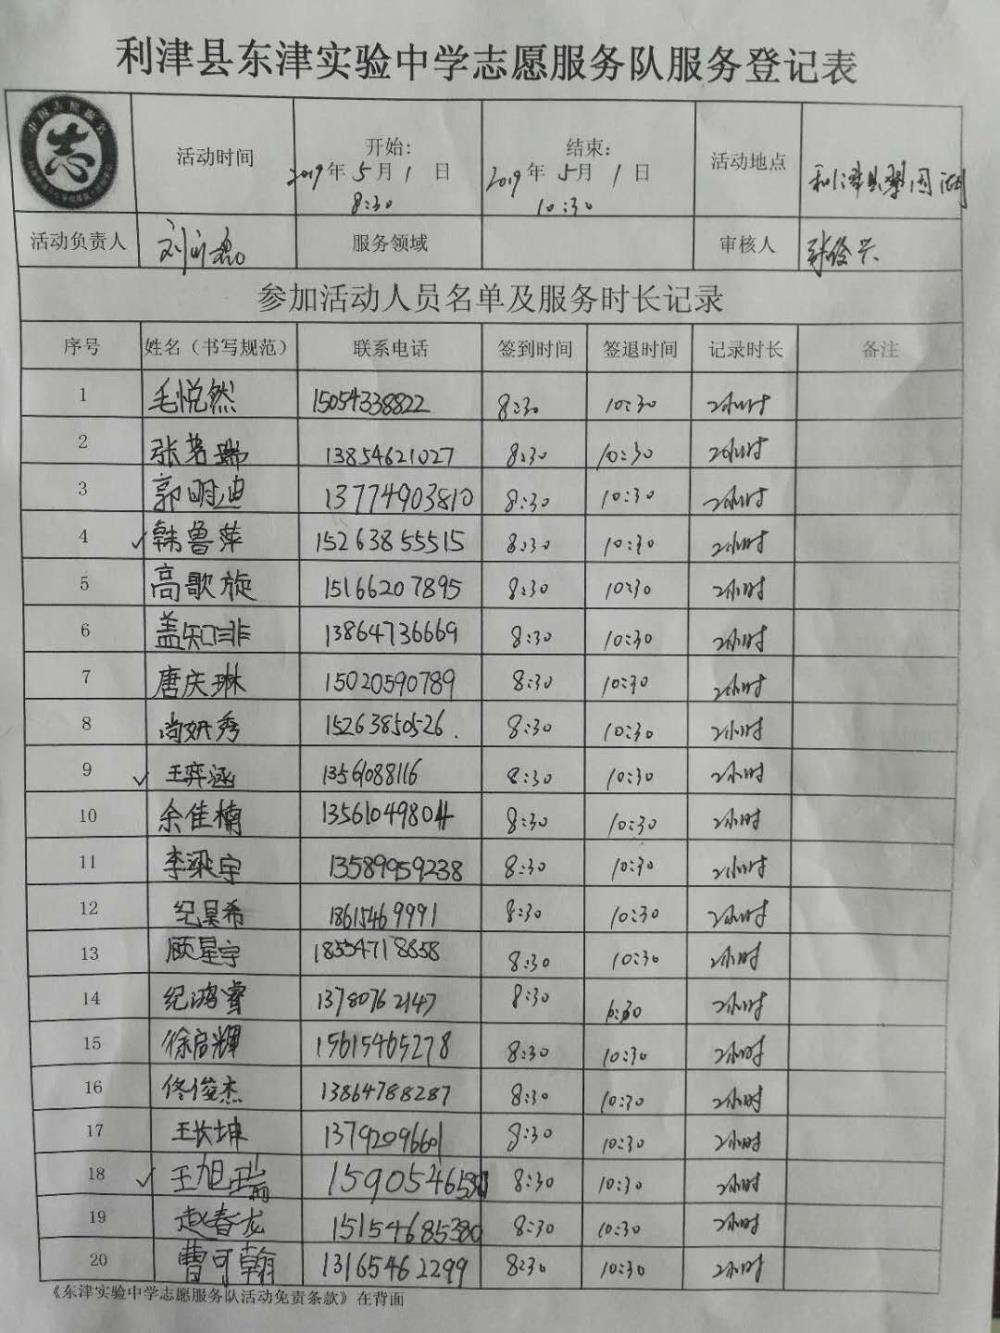 利津县东津实验中学志愿服务队服务登记表
志
活动时间 开始: 2019年5月1日 8:30 结束: 2019年5月1日 10:30 活动地点 利津县
活动负责人 服务领域 审核人 张俊兴
参加活动人员名单及服务时长记录
序号 姓名（书写规范） 联系电话 签到时间 签退时间 记录时长 备注
1 毛悦然 15054338822 8:30 10:30 2小时
2 张茗瑞 13854621027 8:30 10:30 2小时
3 郭明迪 13774903810 8:30 10:30 2小时
4 ✓韩鲁萍 15263855515 8:30 10:30 2小时
5 高歌旋 15166207895 8:30 10:30 2小时
6 盖知非 13864736669 8:30 10:30 2小时
7 唐庆琳 15020590789 8:30 10:30 2小时
8 尚妍秀 15263850526. 8:30 10:30 2小时
9 ✓王弈涵 13561088116 8:30 10:30 2小时
10 余佳楠 13561049804 8:30 10:30 2小时
11 李梁宇 13589959238 8:30 10:30 2小时
12 纪昊希 18615469991 8:30 10:30 2小时
13 顾星宇 18554718658 8:30 10:30 2小时
14 纪鸿睿 13780762147 8:30 2小时
15 徐启辉 15615465278 8:30 10:30 2小时
16 佟俊杰 13864788287 8:30 10:30 2小时
17 王长坤 13792096601 8:30 10:30 2小时
18 ✓王旭瑞 8:30 10:30 2小时
19 赵春龙 15154685380 8:30 10:30 2小时
20 曹可翰 13165462299 8:30 10:30 2小时
《东津实验中学志愿服务队活动免责条款》在背面